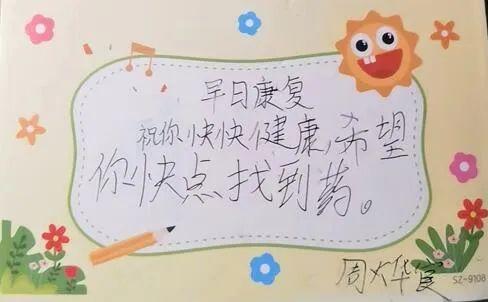 早日康复
祝你快快健康,希望
你快点找到药。
周大华
SZ-9108